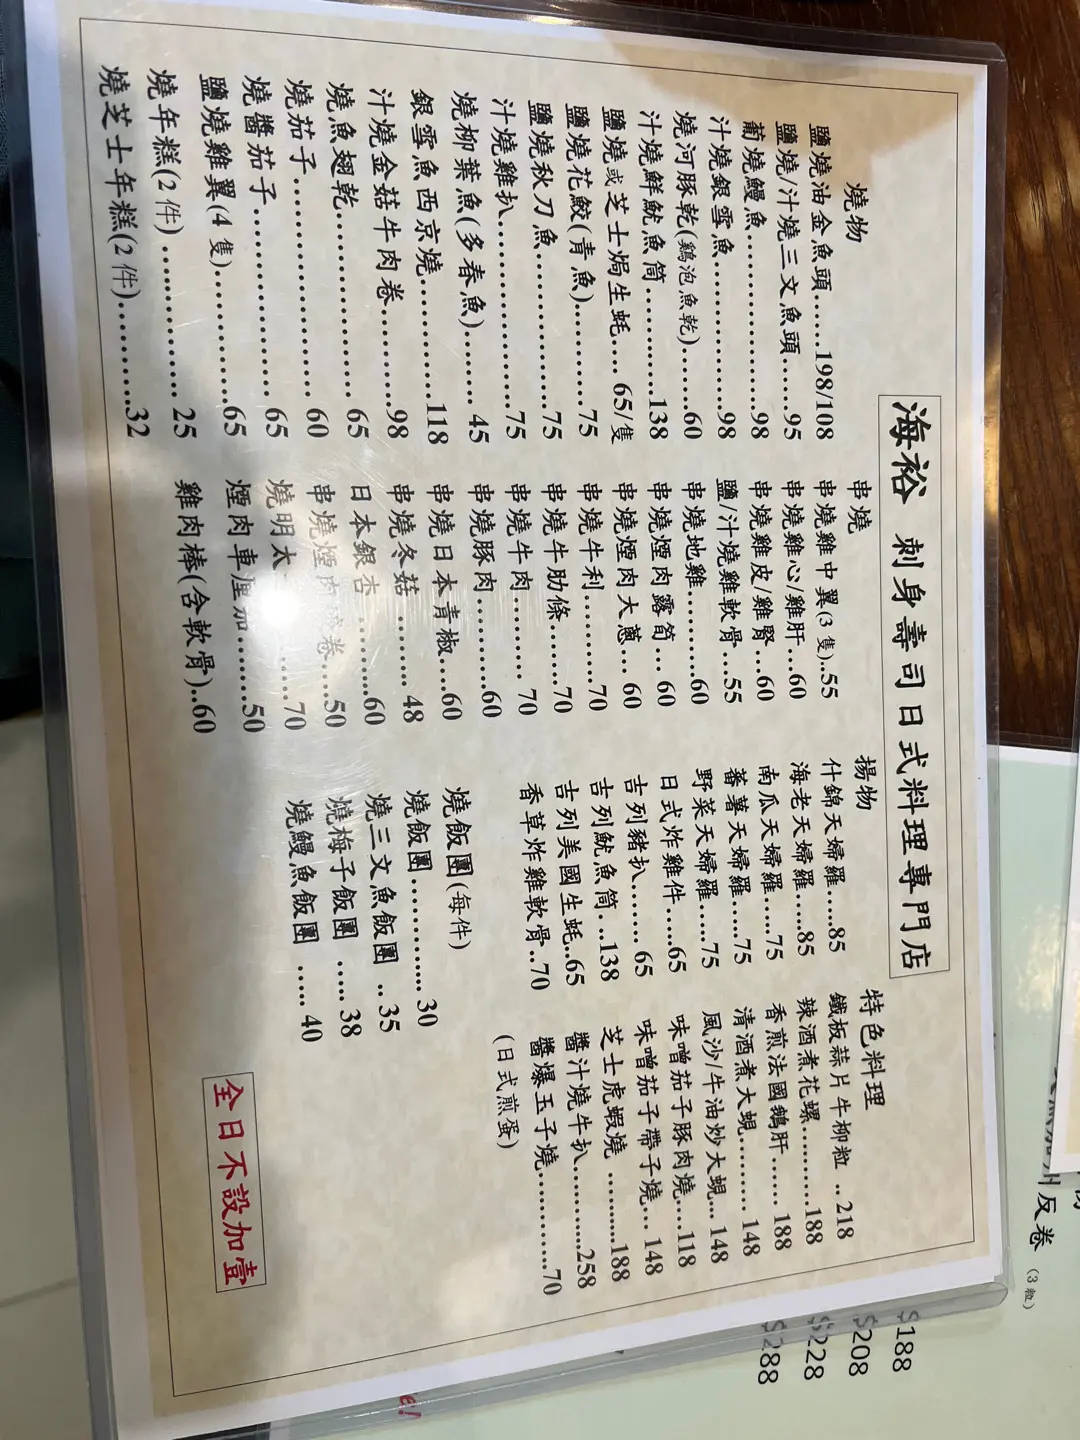 海裕 刺身壽司日式料理專門店
燒物
鹽燒油金魚頭......198/108
鹽燒/汁燒三文魚頭.....95
葡燒鰻魚..............98
汁燒銀雪魚............98
燒河豚乾(鷄泡魚乾)......60
汁燒鮮魷魚筒..........138
鹽燒或芝士焗生蚝.... 65/隻
鹽燒花鮫(青魚)........75
鹽燒秋刀魚............75
汁燒雞扒..............75
燒柳葉魚(多春魚)...... 45
銀雪魚西京燒..........118
汁燒金菇牛肉卷........98
燒魚翅乾.............. 65
燒茄子................ 60
燒醬茄子.............. 65
鹽燒雞翼(4 隻)........65
燒年糕(2 件) ............ 25
燒芝士年糕(2 件)........32
串燒
串燒雞中翼(3 隻)..55
串燒雞心/雞肝...60
串燒雞皮/雞腎 ..60
鹽/汁燒雞軟骨 ...55
串燒地雞.........60
串燒煙肉露筍 ... 60
串燒煙肉大蔥... 60
串燒牛利.........70
串燒牛肋條......70
串燒牛肉......... 70
串燒豚肉.........60
串燒日本青椒....60
串燒冬菇 ........ 48
日本銀杏 ........60
串燒煙肉 卷....50
燒明太 ......70
煙肉車厘茄.......50
雞肉棒(含軟骨)..60
揚物
什錦天婦羅......85
海老天婦羅......85
南瓜天婦羅......75
蕃薯天婦羅......75
野菜天婦羅......75
日式炸雞件......65
吉列豬扒....... 65
吉列魷魚筒 ..138
吉列美國生蚝..65
香草炸雞軟骨 ..70
燒飯團(每件)
燒飯團........... 30
燒三文魚飯團 .. 35
燒梅子飯團 ..... 38
燒鰻魚飯團 ..... 40
特色料理
鐵板蒜片牛柳粒 .. 218
辣酒煮花螺..........188
香煎法國鵝肝...... 188
清酒煮大蜆......... 148
風沙/牛油炒大蜆... 148
味噌茄子豚肉燒....118
味噌茄子帶子燒... 148
芝士虎蝦燒 .........188
醬汁燒牛扒.........258
醬爆玉子燒..........70
(日式煎蛋)
全日不設加壹
反卷 (3粒)
$188
$208
$228
$288